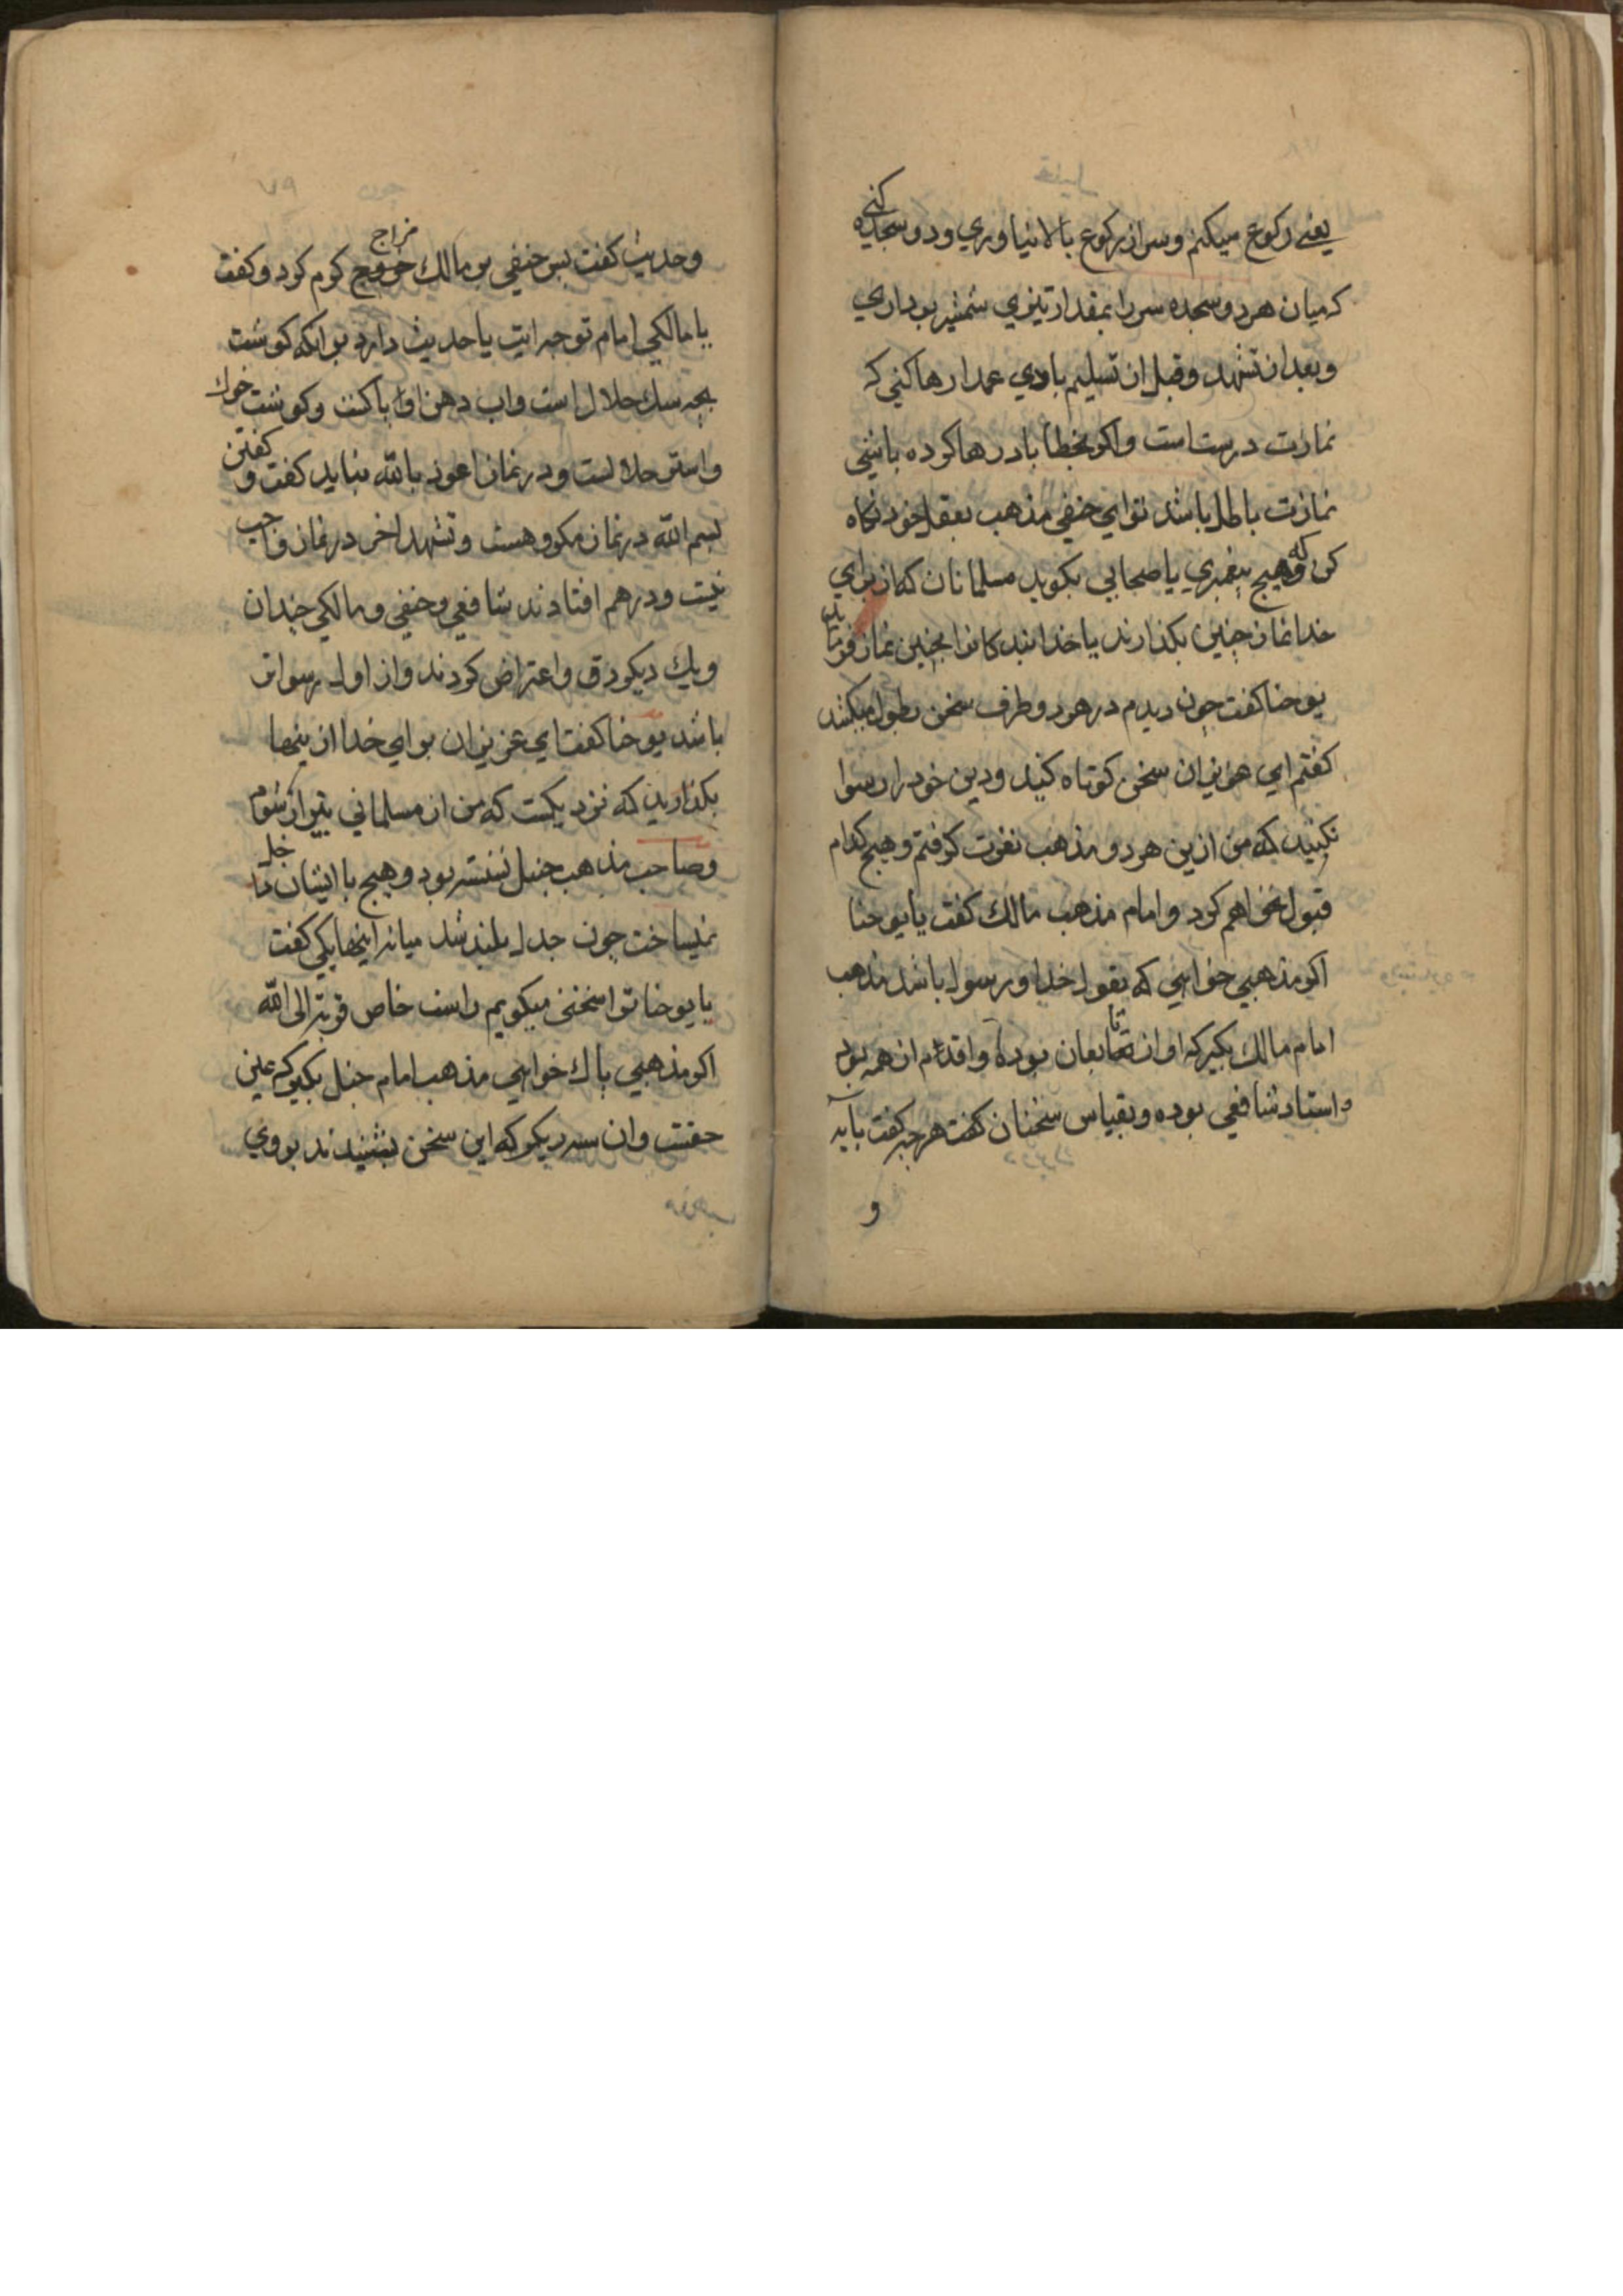 یعنی رکوع میکنم و سر از رکوع بالا نیاوری و دو سجده کنی
که میان هر دو سجده سر را بمقدار تیزی شمشیر بر داری
و بعد از تشهد و قبل از تسلیم بادی عمدا رها کنی که
نمازت درستست و اکر بخطا باد رها کرده باشی
نمازت باطل باشد تو ای حنفی مذهب بعقل خود نکاه
کن که هیچ پیغمبری یا صحابی بکوید مسلمانان که از برای
خدا نماز چنین بکذارند یا خدا بندکانرا بچنین نماز فرماید
یوحنا کفت چون دیدم در هر دو طرف سخن بطول میکشد
کفتم ای عزیزان سخن کوتاه کنید و دین خود را رسوا
نکنید که من ازین هر دو مذهب نفرت کرفتم و هیچ کدام
قبول نخواهم کرد و امام مذهب مالک کفت یا یوحنا
اکر مذهبی خواهی که بقول خدا و رسول باشد مذهب
امام مالک بکیر که او از تابعان بوده و اقدم از همه بود
و استاد شافعی بوده و بقیاس سخنان کفت هر چه کفت بآیه
و
۷۹
و حدیث کفت پس حنفی بر مالک مزاج کرم کرد و کفت
یا مالکی امام تو چه آیت یا حدیث دارد بر آنکه کوشت
بچه سک حلال است و آب دهن او پاکست و کوشت خوک
و استر حلالست و در نماز اعوذ بالله نباید کفت و کفتن
بسم الله در نماز مکروهست و تشهد اخر در نماز واجب
نیست و درهم افتادند شافعی و حنفی و مالکی چندان
و یک دیکر دق و اعتراض کردند و از اول رسواتر
باشد یوحنا کفت ای عزیزان برای خدا از ینها
بکذارید که نزدیکست که من از مسلمانی بیزار شوم
و صاحب مذهب حنبل نشسته بود و هیچ با ایشان
نمیساخت چون جدل بلند شد میانه اینها یکی کفت
یا یوحنا ترا سخنی میکویم راست خاص قربة الی الله
اکر مذهبی پاک خواهی مذهب امام حنبل بکیر که عین
حقست و ان سه دیکر که این سخن بشنیدند بروی